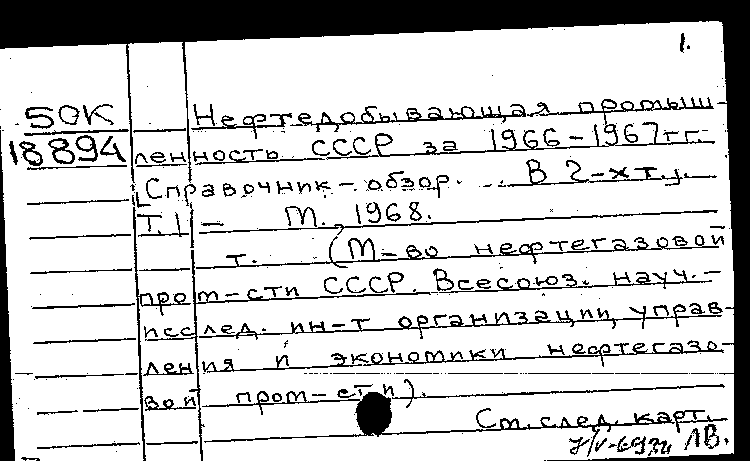 1.
50К Нефтедобывающая промыш-
18894 ленность СССР за 1966-1967гг.
[Справочник-обзор. ... В 2-х т.].
Т.1 - М., 1968.
т. (М-во нефтегазовой
пром-сти СССР. Всесоюз. науч.-
исслед. ин-т организации, управ-
ления и экономики нефтегазо-
вой пром-сти).
См. след. карт.
ЛВ.